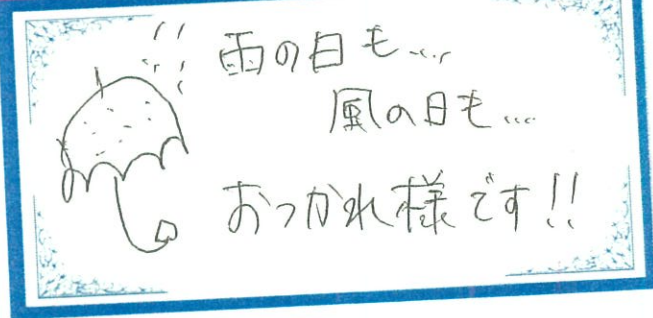 雨の日も...
風の日も...
おつかれ様です!!